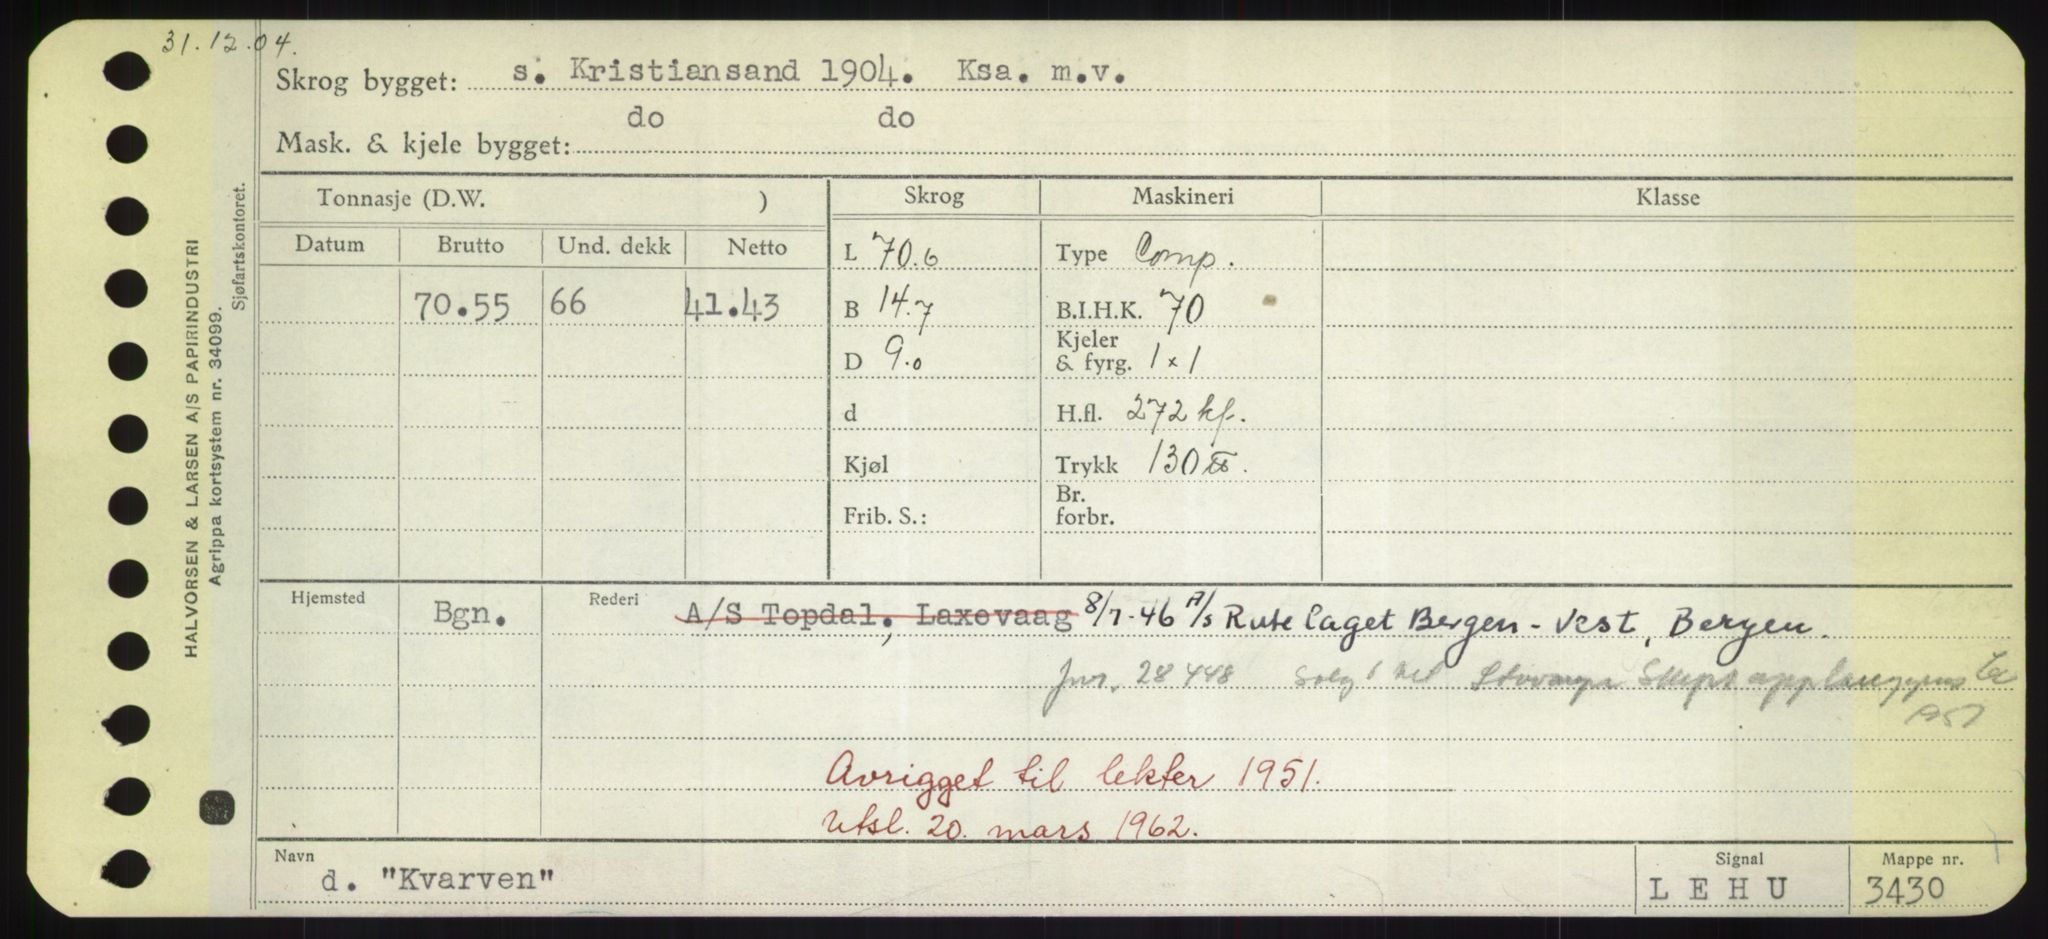 31.12.04.
Skrog bygget: s. Kristiansand 1904. Ksa. m.v.
do do
Mask. & kjele bygget:
HALVORSEN & LARSEN A/S PAPIRINDUSTRI
Agrippa kortsystem nr. 34099.
Sjøfartskontoret.
Tonnasje (D.W. ) Skrog Maskineri Klasse
Datum Brutto Und. dekk Netto L 70.6 Type Comp.
70.55 66 41.43 B 14.7 B.I.H.K. 70
D 9.0 Kjeler & fyrg. 1 x 1
d H.fl. 272 kf.
Kjøl Trykk 130 ℔.
Frib. S.: Br. forbr.
Hjemsted Bgn. Rederi A/S Topdal, Laxevaag 8/7-46 A/s Rutelaget Bergen-Vest, Bergen.
Jnr. 28448 Solg t til Skips
Avrigget til lekter 1951.
Utsl. 20. mars 1962.
Navn Signal Mappe nr.
d. "Kvarven" LEHU 3430